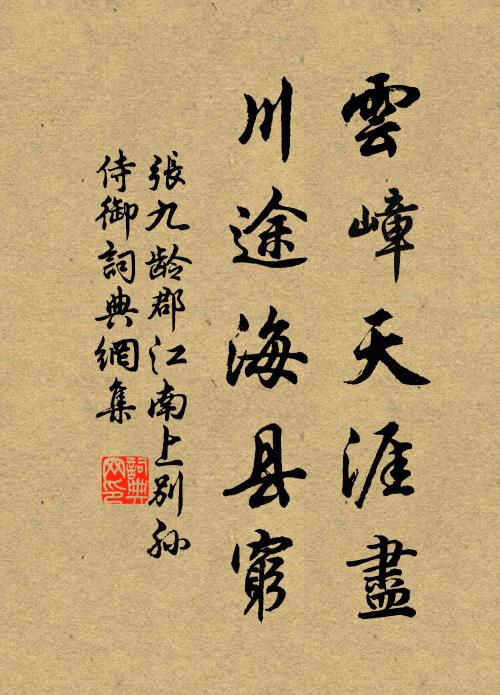 雲嶂天涯盡
川途海县窮
張九龄郡江南上別孙
侍御詞典網集
詞典
网印